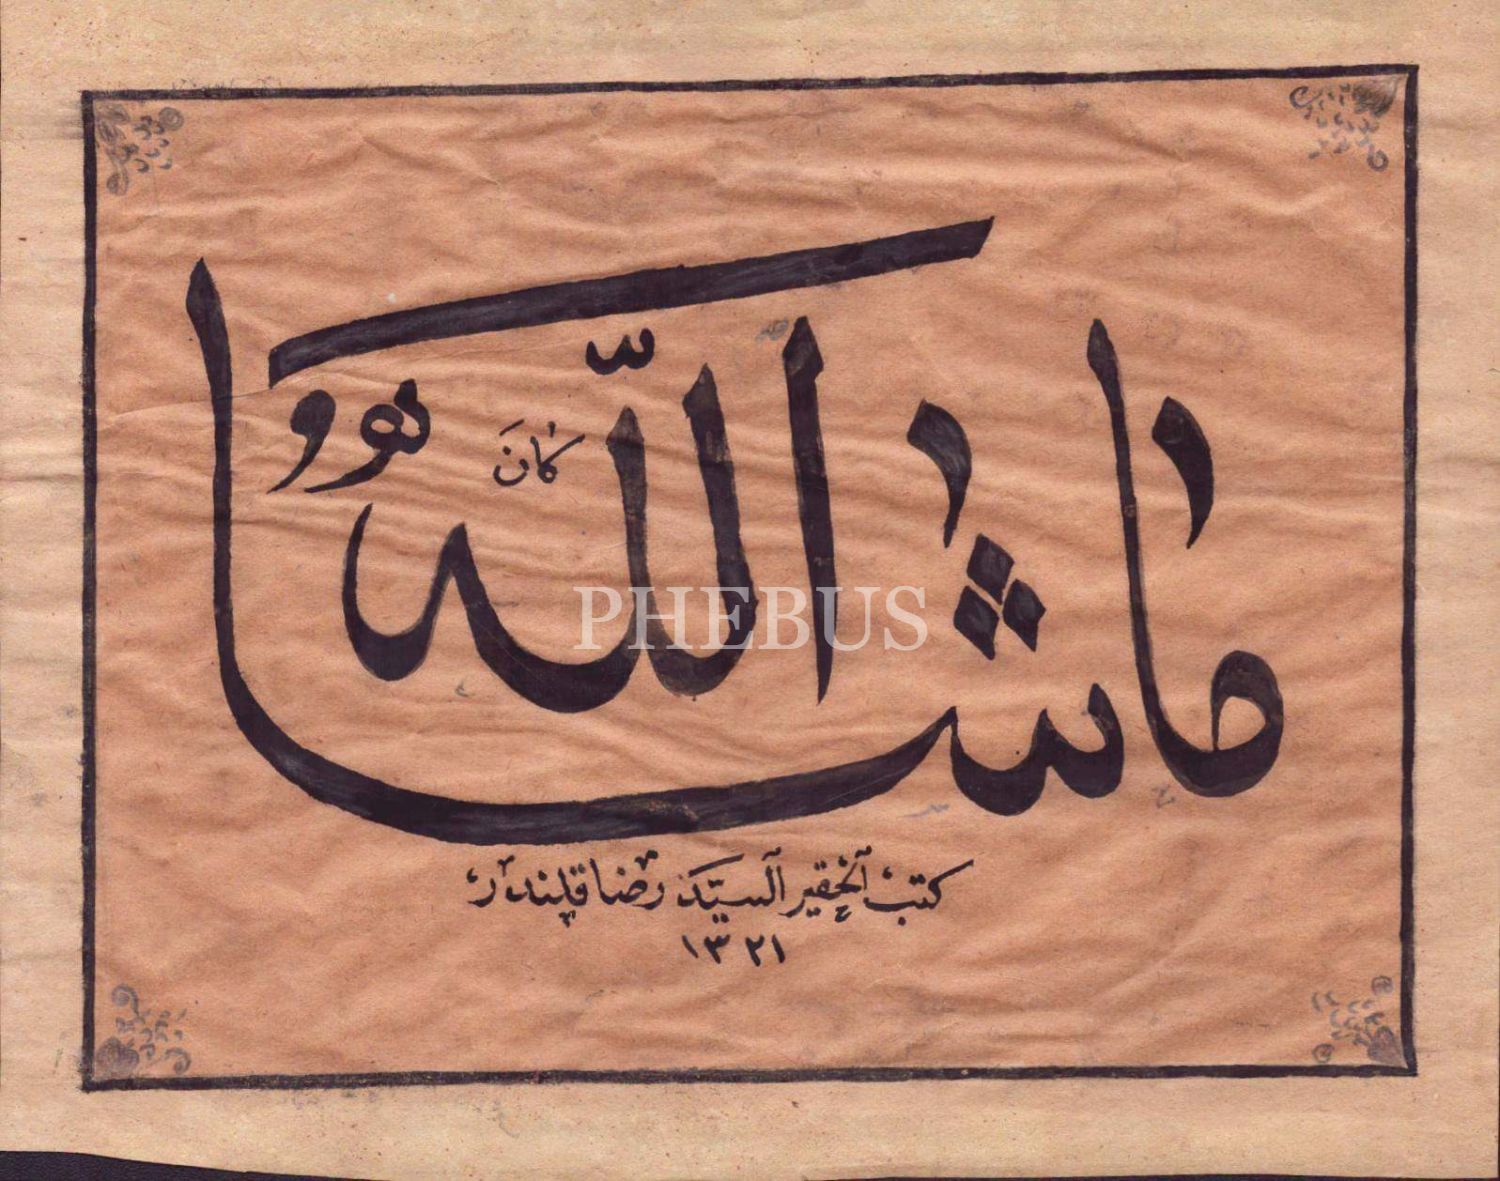 ما شاء الله كان
هو
كتب الحقير السيد رضا قلندر
١٣٢١
PHEBUS